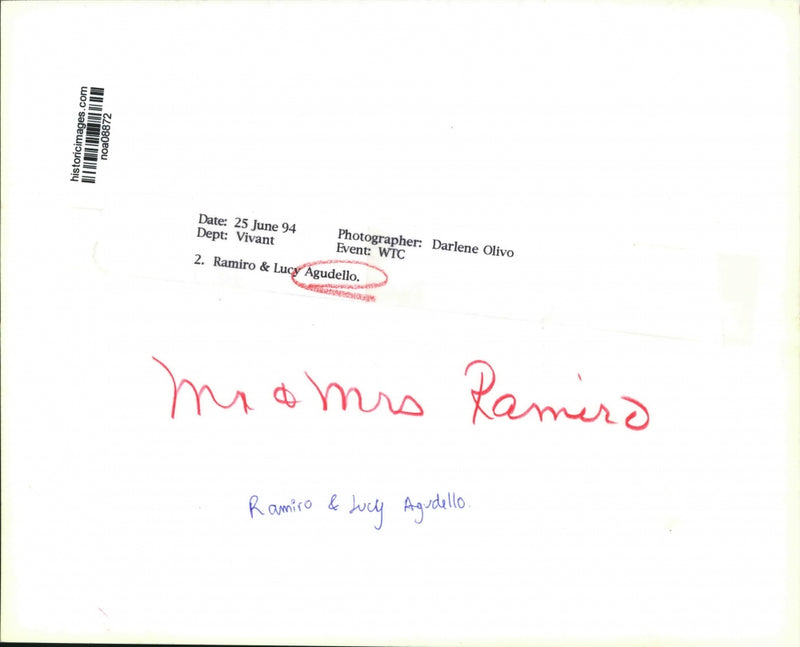 historicimages.com
noa08872
Date: 25 June 94
Dept: Vivant
Photographer: Darlene Olivo
Event: WTC
2. Ramiro & Lucy Agudello.
Mr & Mrs Ramiro
Ramiro & Lucy Agudello.